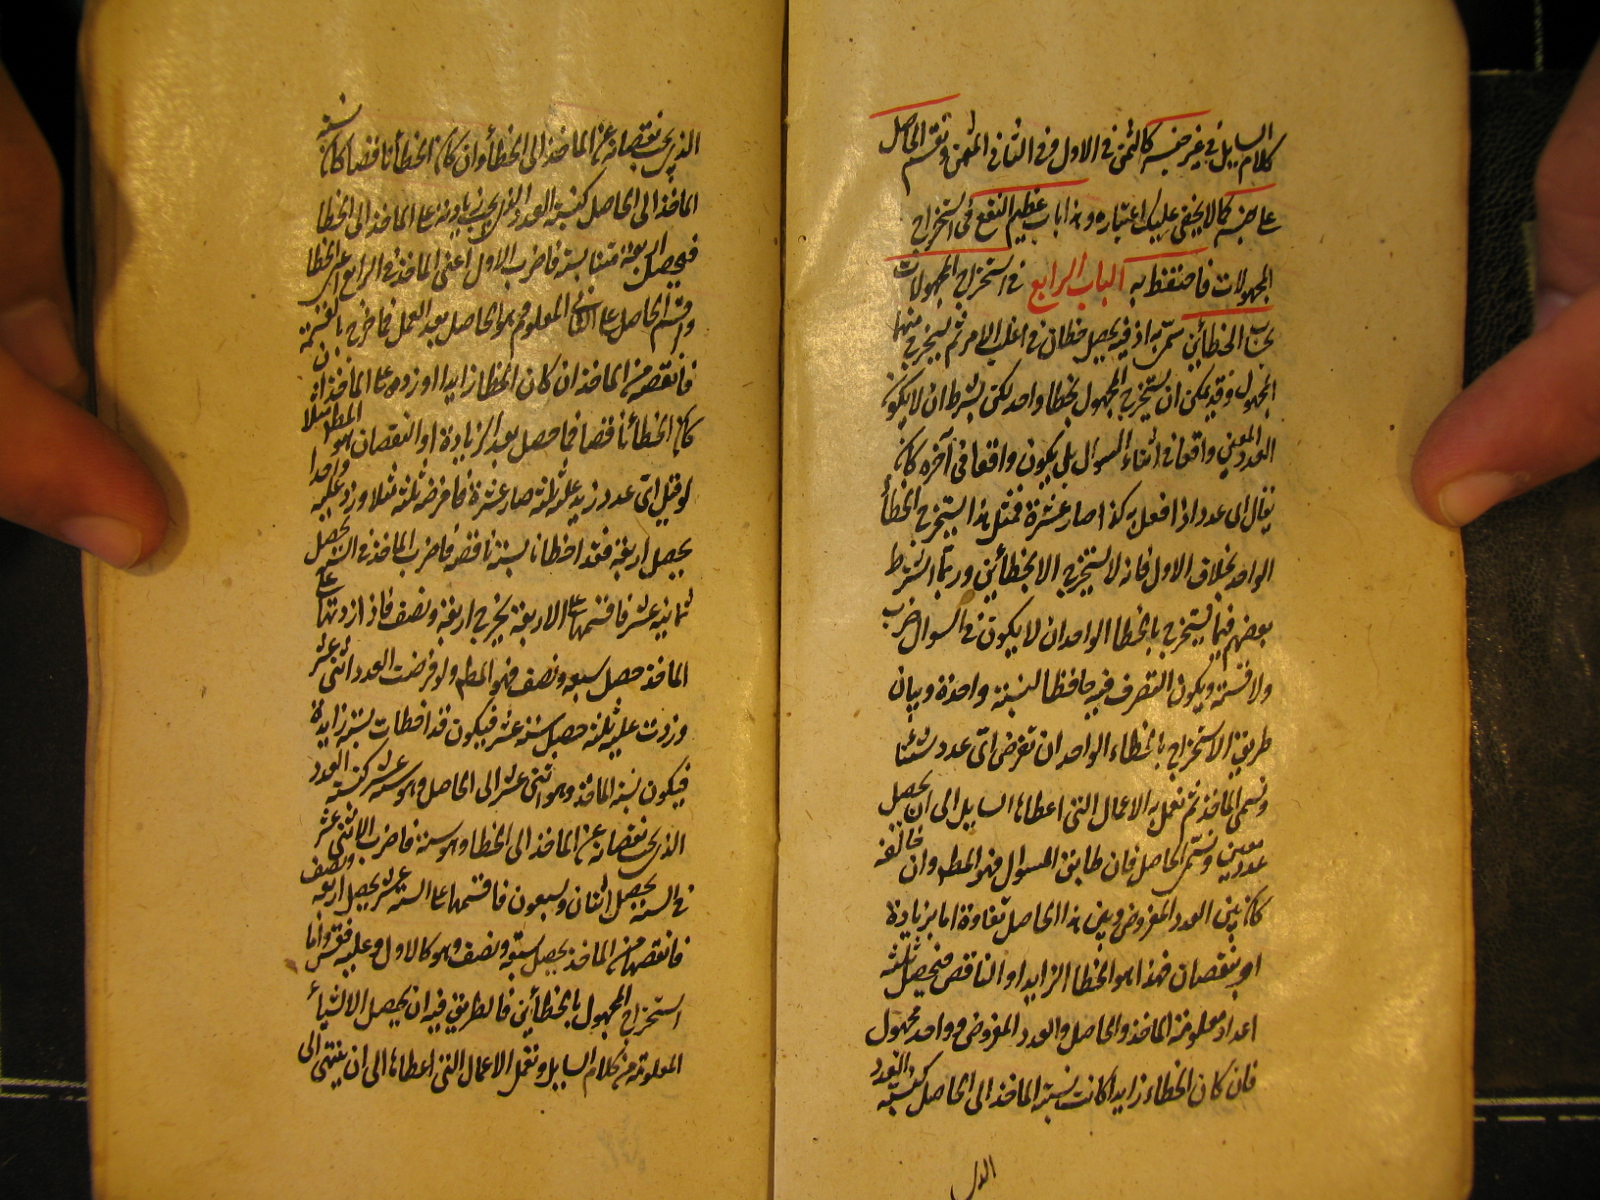 كلام السايل في غير جنسه كالثمن في الاول وفي الثاني المثمن وتقسم الحاصل
على جنسه كما لا يخفى عليك اعتباره وهذا باب عظيم النفع في استخراج
المجهولات فاحتفظ به الباب الرابع في استخراج المجهولات
بحساب الخطأين سمى به اذ فيه يحصل خطان في اغلب الامر ثم يستخرج منهما
المجهول وقد يمكن ان يستخرج المجهول بخطا واحد لكن بشرط ان لا يكون
العدد المعين واقعا في اثناء السوال بل يكون واقعا في آخره كان
يقال اى عدد اذا فعل به كذا صار عشرة فمثل هذا يستخرج بالخطأ
الواحد بخلاف الاول فانه لا يستخرج الا بخطأين وربما اشترط
بعضهم فيما يستخرج بالخطا الواحد ان لا يكون في السوال ضرب
ولا قسمة ويكون التصرف فيه حافظا لنسبة واحدة وبيان
طريق الاستخراج بالخطاء الواحد ان تفرض اى عدد شئنا
ونسمى الماخذ ثم نعمل به الاعمال التى اعطاها السايل الى ان يحصل
عدد معين ونسمى الحاصل فان طابق المسول فهو المط وان خالفه
كان بين العدد المفروض وبين هذا الحاصل تفاوة اما بزيادة
او بنقصان فهذا هو الخطا الزايد او الناقص فيحصل ثلثه
اعداد معلومة الماخذ والحاصل والعدد المفروض وواحد مجهول
فان كان الخطاء زايدا كانت نسبة الماخذ الى الحاصل كنسبة العدد
الذى
الذى يجب نقصانه عن الماخذ الى الخطأ وان كان الخطأ ناقصا كان نسبة
الماخذ الى الحاصل كنسبة العدد الذى يجب زيادته على الماخذ الى الخطا
فيحصل اربعة متناسبة فاضرب الاول اعنى الماخذ في الرابع اعنى الخطا
واقسم الحاصل على الثانى المعلوم وهو الحاصل بعد العمل فما خرج بالقسمة
فانقصه من الماخذ ان كان الخطا زايدا او زده على الماخذ ان
كان الخطأ ناقصا فما حصل بعد الزيادة او النقصان هو المط مثلا
لو قيل اى عدد زيد عليه ثلثة صار عشرة فافرضه ثلثة مثلا وزد عليه واحدا
يحصل اربعة فقد اخطانا بستة ناقصه فاضرب الماخذ في الستة يحصل
ثمانيه عشر فاقسمها على الاربعة يخرج اربعة ونصف فاذا زدتها على
الماخذ حصل سبعه ونصف فهو المط ولو فرضت العدد اثنى عشر
وزدت عليه ثلثه حصل ستة عشر فيكون قد اخطات بستة زايدة
فيكون نسبة الماخذ وهو اثنى عشر الى الحاصل وهو ستة عشر كنسبة العدد
الذى يجب نقصانه عن الماخذ الى الخطا وهو ستة فاضرب الاثنى عشر
في الستة يحصل اثنان وسبعون فاقسمها على الستة عشر يحصل اربعة ونصف
فانقصها من الماخذ يحصل سبعة ونصف وهو كالاول وعليه فقس واما
استخراج المجهول بالخطأين فالطريق فيه ان يحصل الاشياء
المعلومة من كلام السايل وتعمل الاعمال التى اعطاها الى ان ينتهى الى